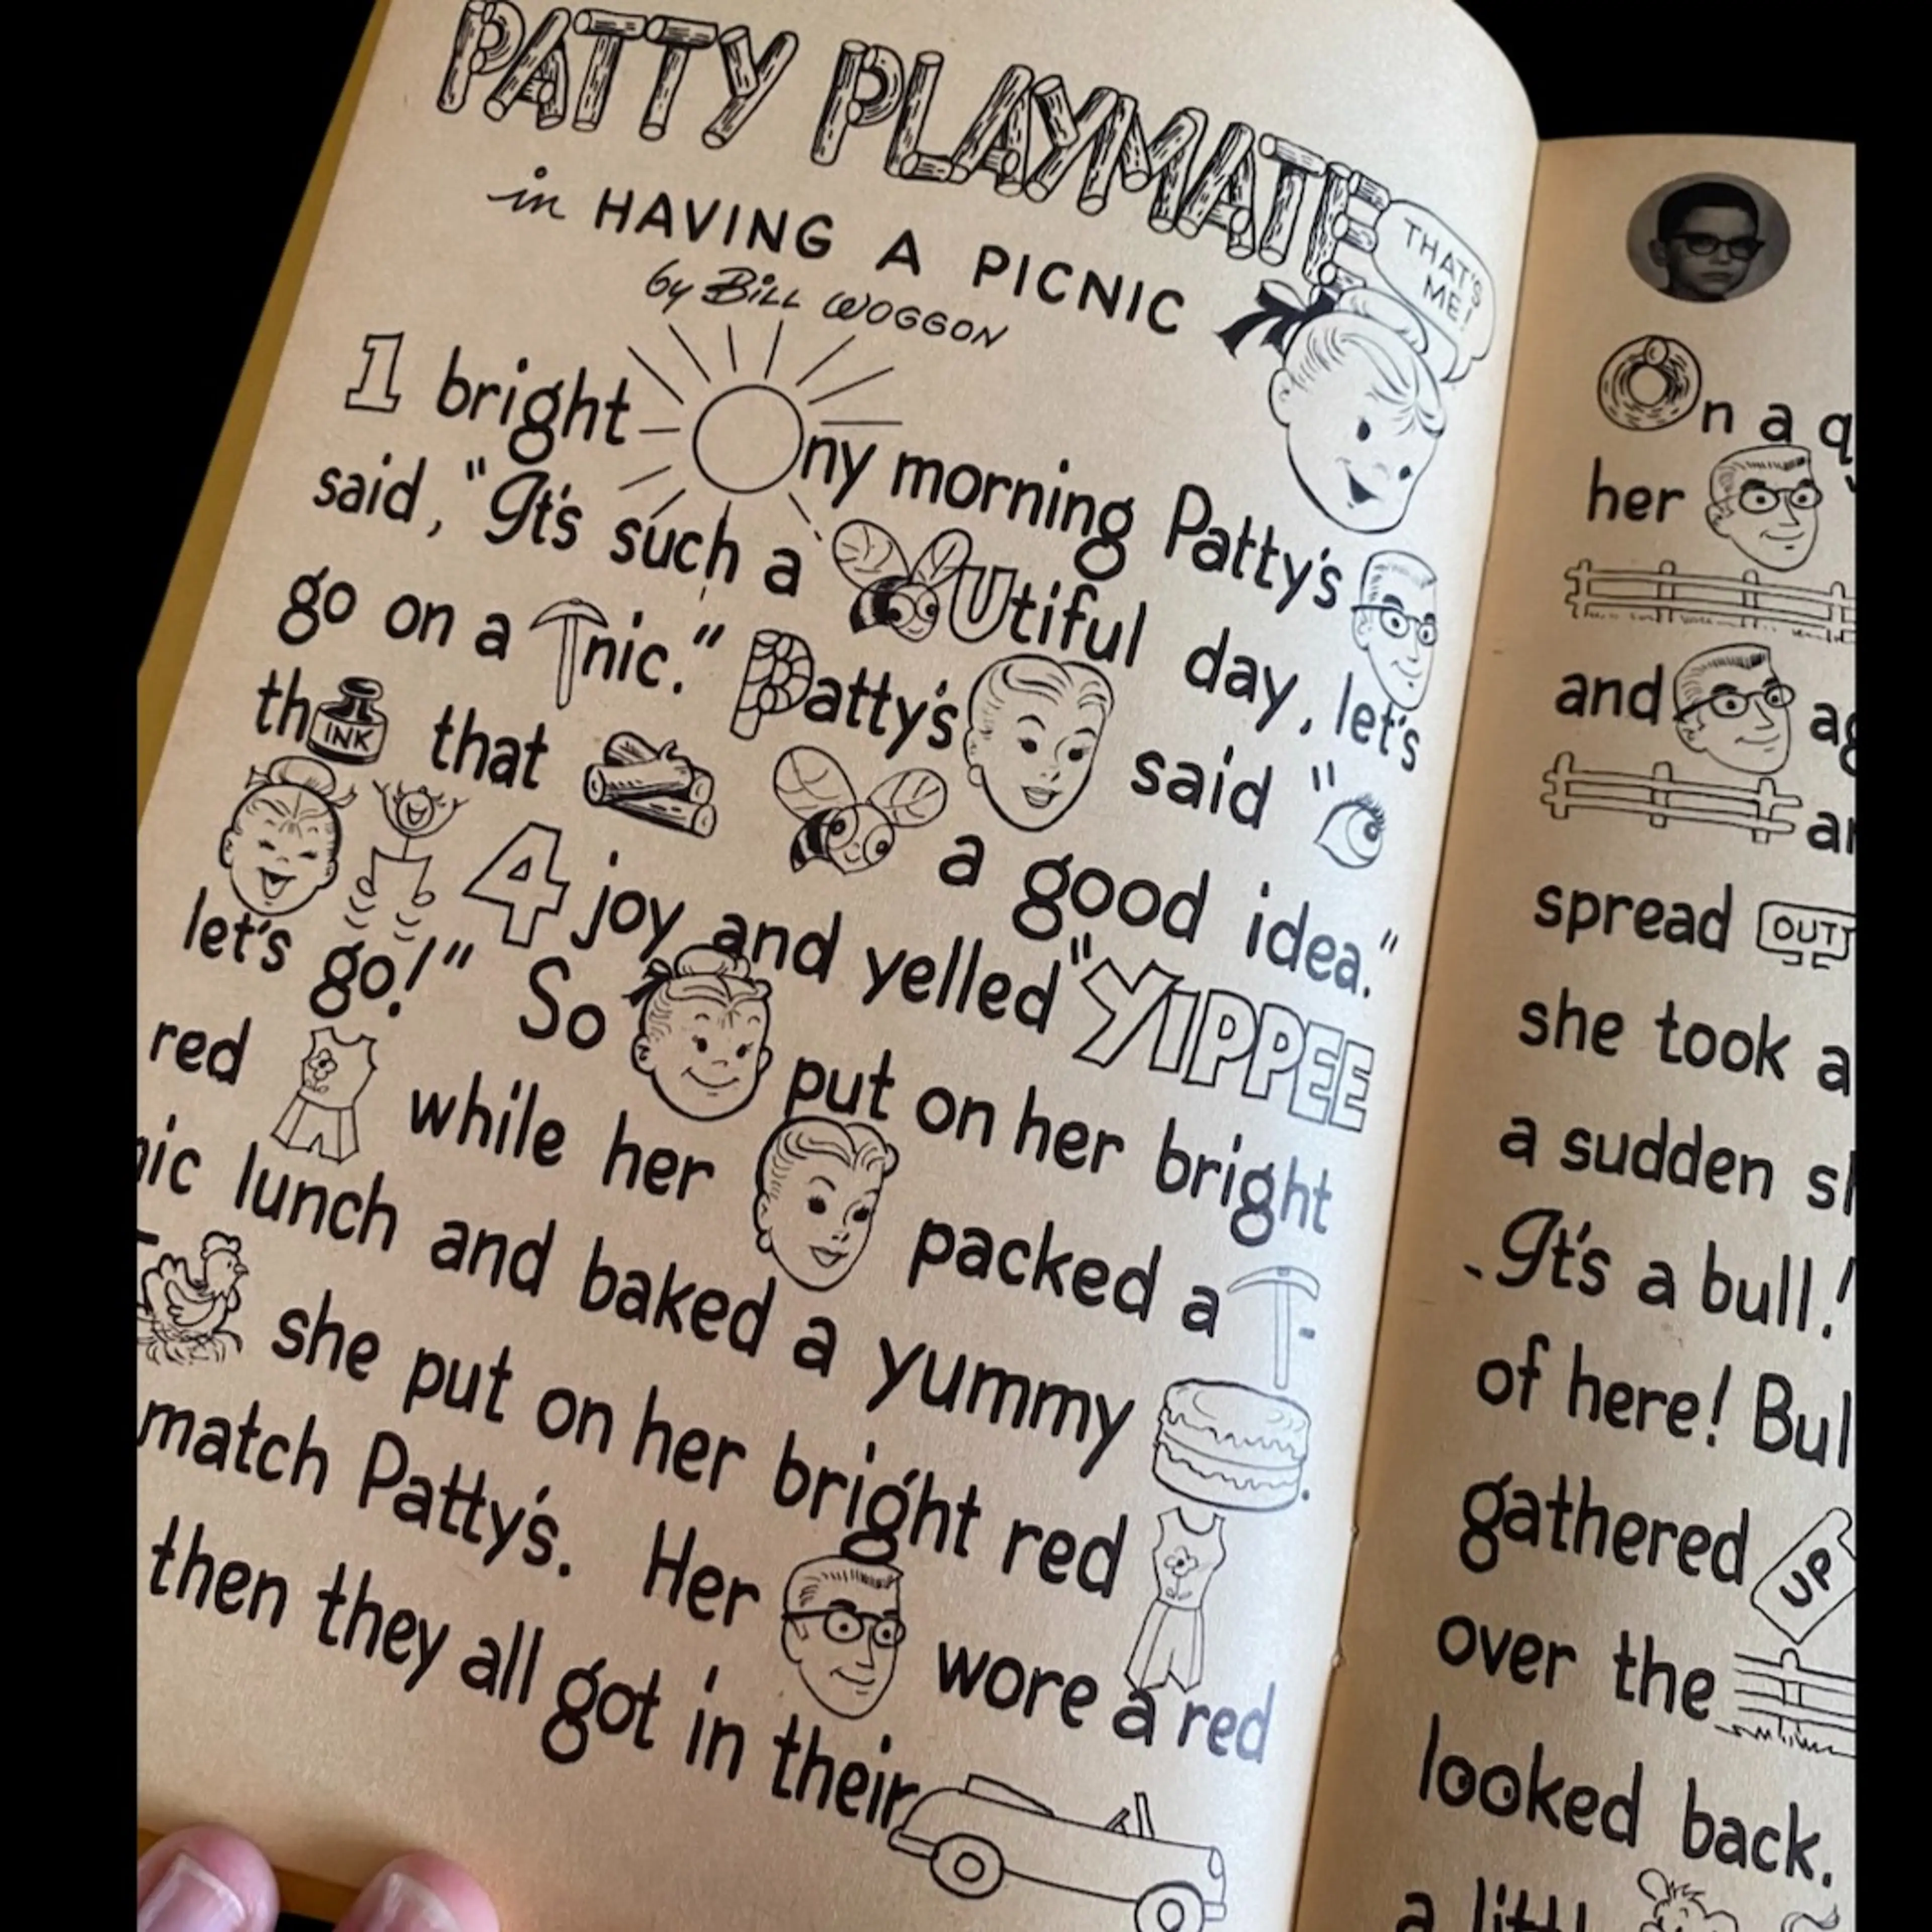 PATTY PLAYMATE
in HAVING A PICNIC
by BILL WOGGON
THAT'S
ME!
1 bright ny morning Patty's
said, "It's such a Utiful day, let's
go on a nic." Patty's said "
th INK that a good idea."
4 joy and yelled "YIPPEE
let's go!" So put on her bright
red while her packed a -
nic lunch and baked a yummy .
she put on her bright red
match Patty's. Her wore a red
then they all got in their
On a
her
and
spread OUT
she took a
a sudden
It's a bull!
of here!
gathered UP
over the
looked back.
a